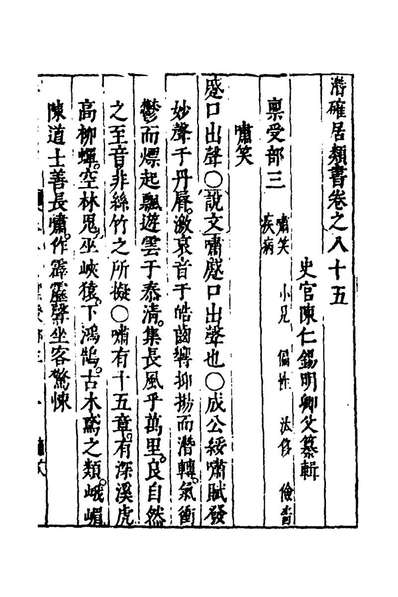 潛確居類書卷之八十五
史官陳仁錫明卿父纂輯
稟受部三
嘯笑 小兒 偏性 法俗 儉嗇
疾病
嘯笑
蹙口出聲○說文嘯蹙口出聲也○成公綏嘯賦發
妙聲于丹唇激哀音于皓齒響抑揚而潛轉氣衝
鬱而熛起飄遊雲于泰清集長風乎萬里良自然
之至音非絲竹之所擬○嘯有十五章有深溪虎
高柳蟬空林鬼巫峽猿下鴻鵠古木鳶之類峨嵋
陳道士善長嘯作霹靂聲坐客驚悚